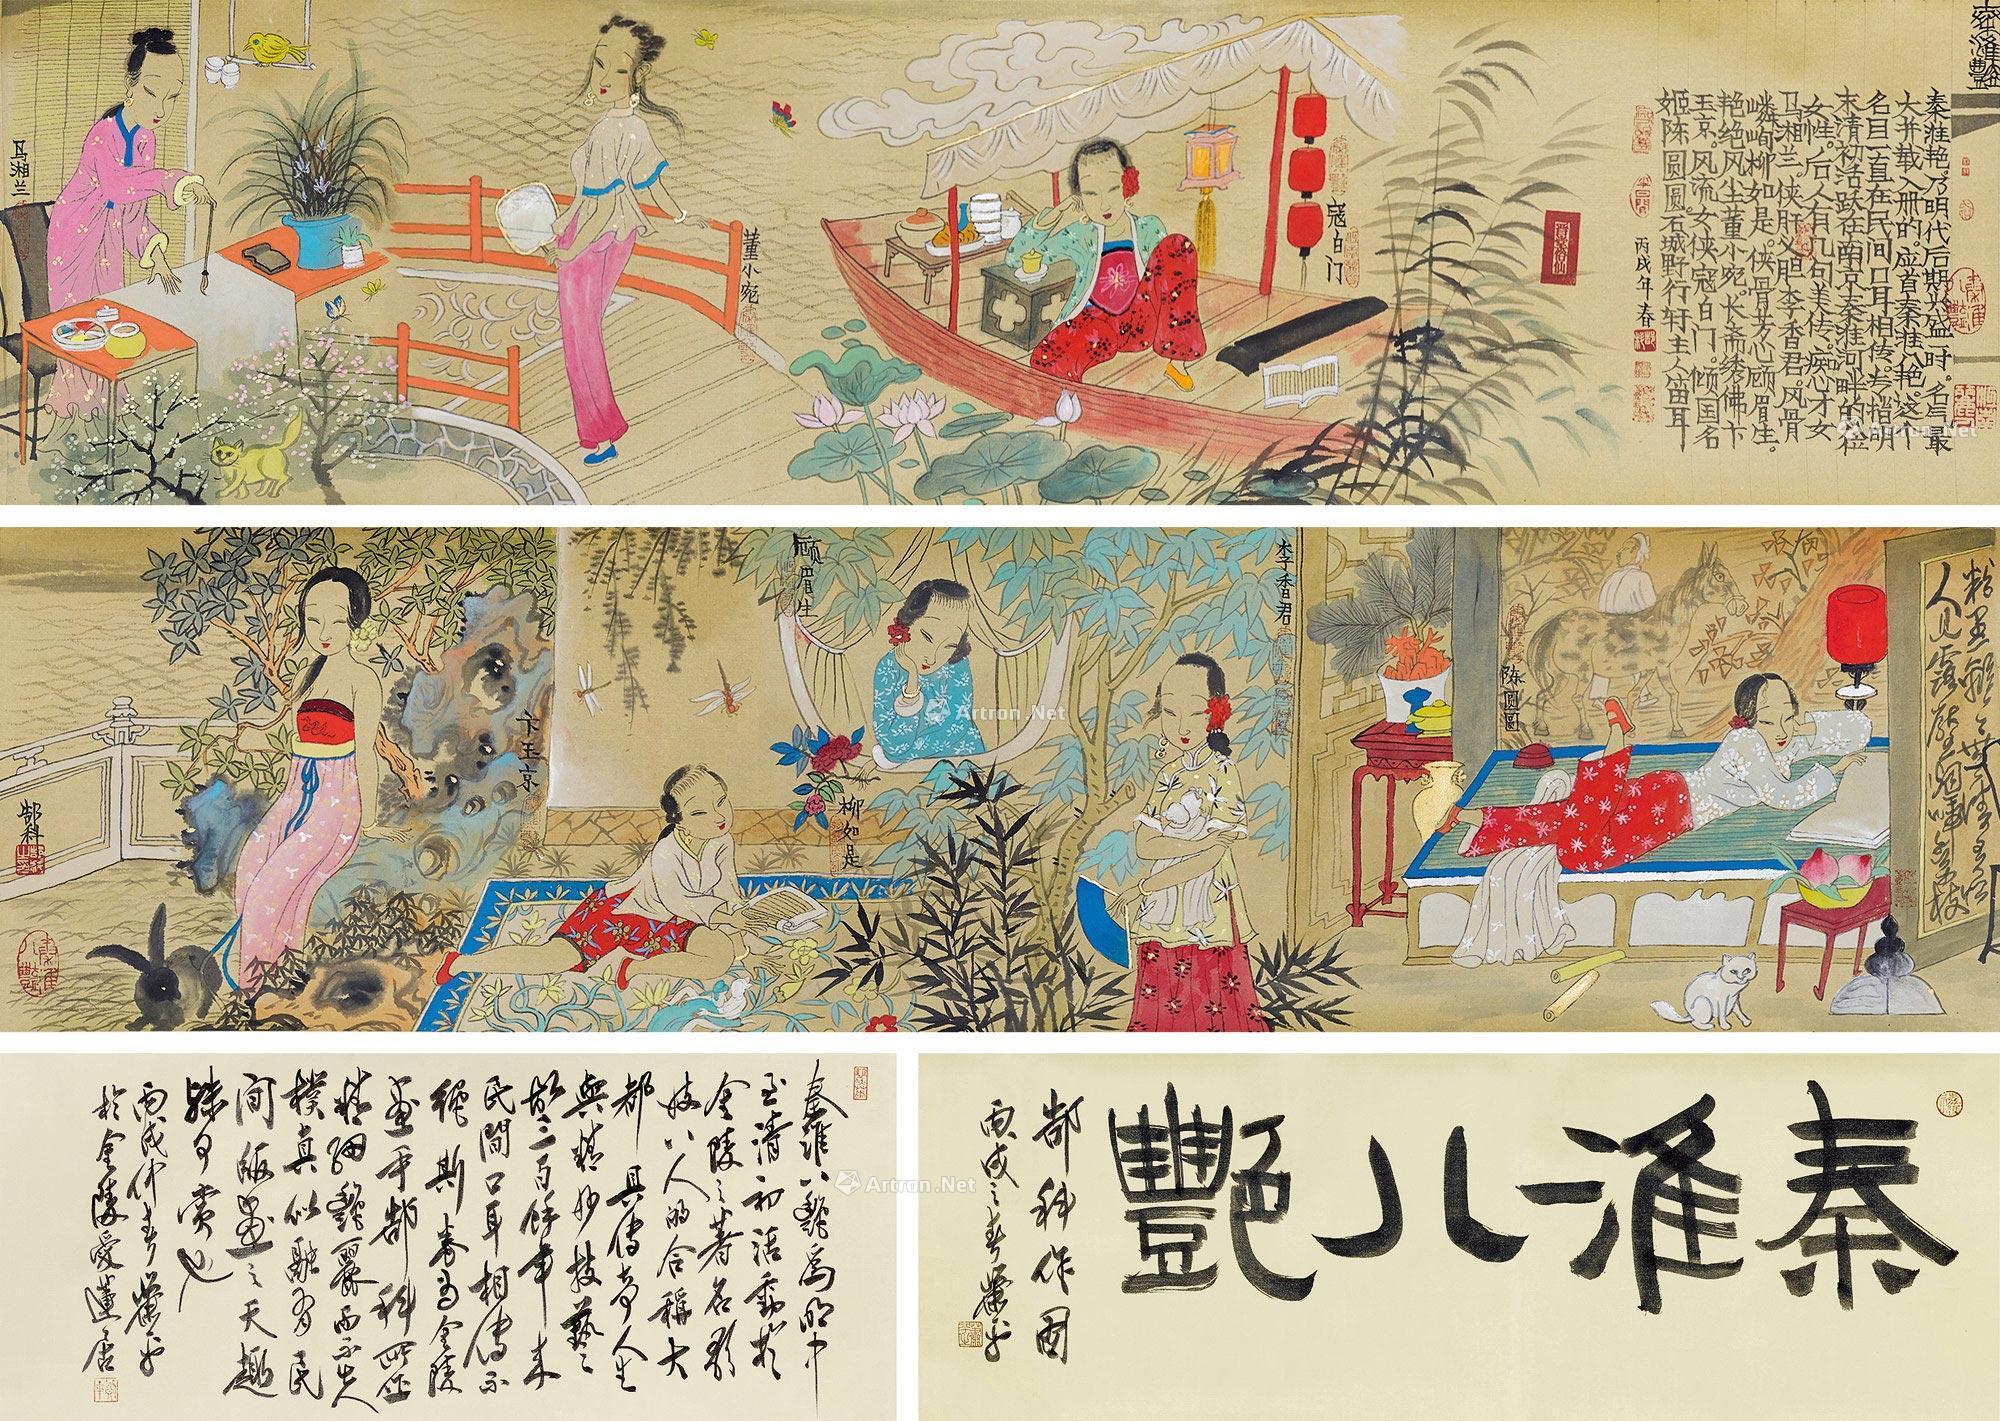 秦淮八艳
秦淮艳。乃明代后期兴盛时。名气最
大并载入册的。应首秦淮八艳。这个
名目一直在民间口耳相传。专指明
末清初活跃在南京秦淮河畔的八位
女性。后人有几句美传。痴心才女
马湘兰。侠肝义胆李香君。风骨
嶙峋柳如是。侠骨芳心顾眉生。
艳绝风尘董小宛。长斋绣佛卞
玉京。风流女侠寇白门。倾国名
姬陈圆圆。石城野行轩主人笛耳
丙戌年春
寇白门
董小宛
马湘兰
陈圆圆
李香君
顾眉生
柳如是
卞玉京
郜科
秦淮八艷
郜科作图
丙戌之春
秦淮八艷为明中
至清初活动于
金陵之著名歌
妓八人的合稱大
都具传奇人生
與精妙技藝
故三百餘年来
民間口耳相傳不
绝斯卷为金陵
画手郜科所作
精細艷麗而不失
樸真似融有民
间版画之天趣
殊可赏也
丙戌仲春
於金陵愛蓮居
Artron.Net
Artron.Net
Artron.Net
Artron.Net